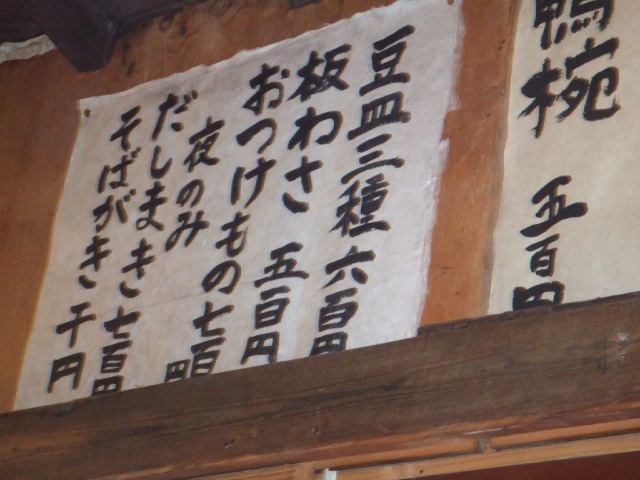 鴨椀 五百円
豆皿三種 六百円
板わさ 五百円
おつけもの 七百円
夜のみ
だしまき 七百円
そばがき 千円